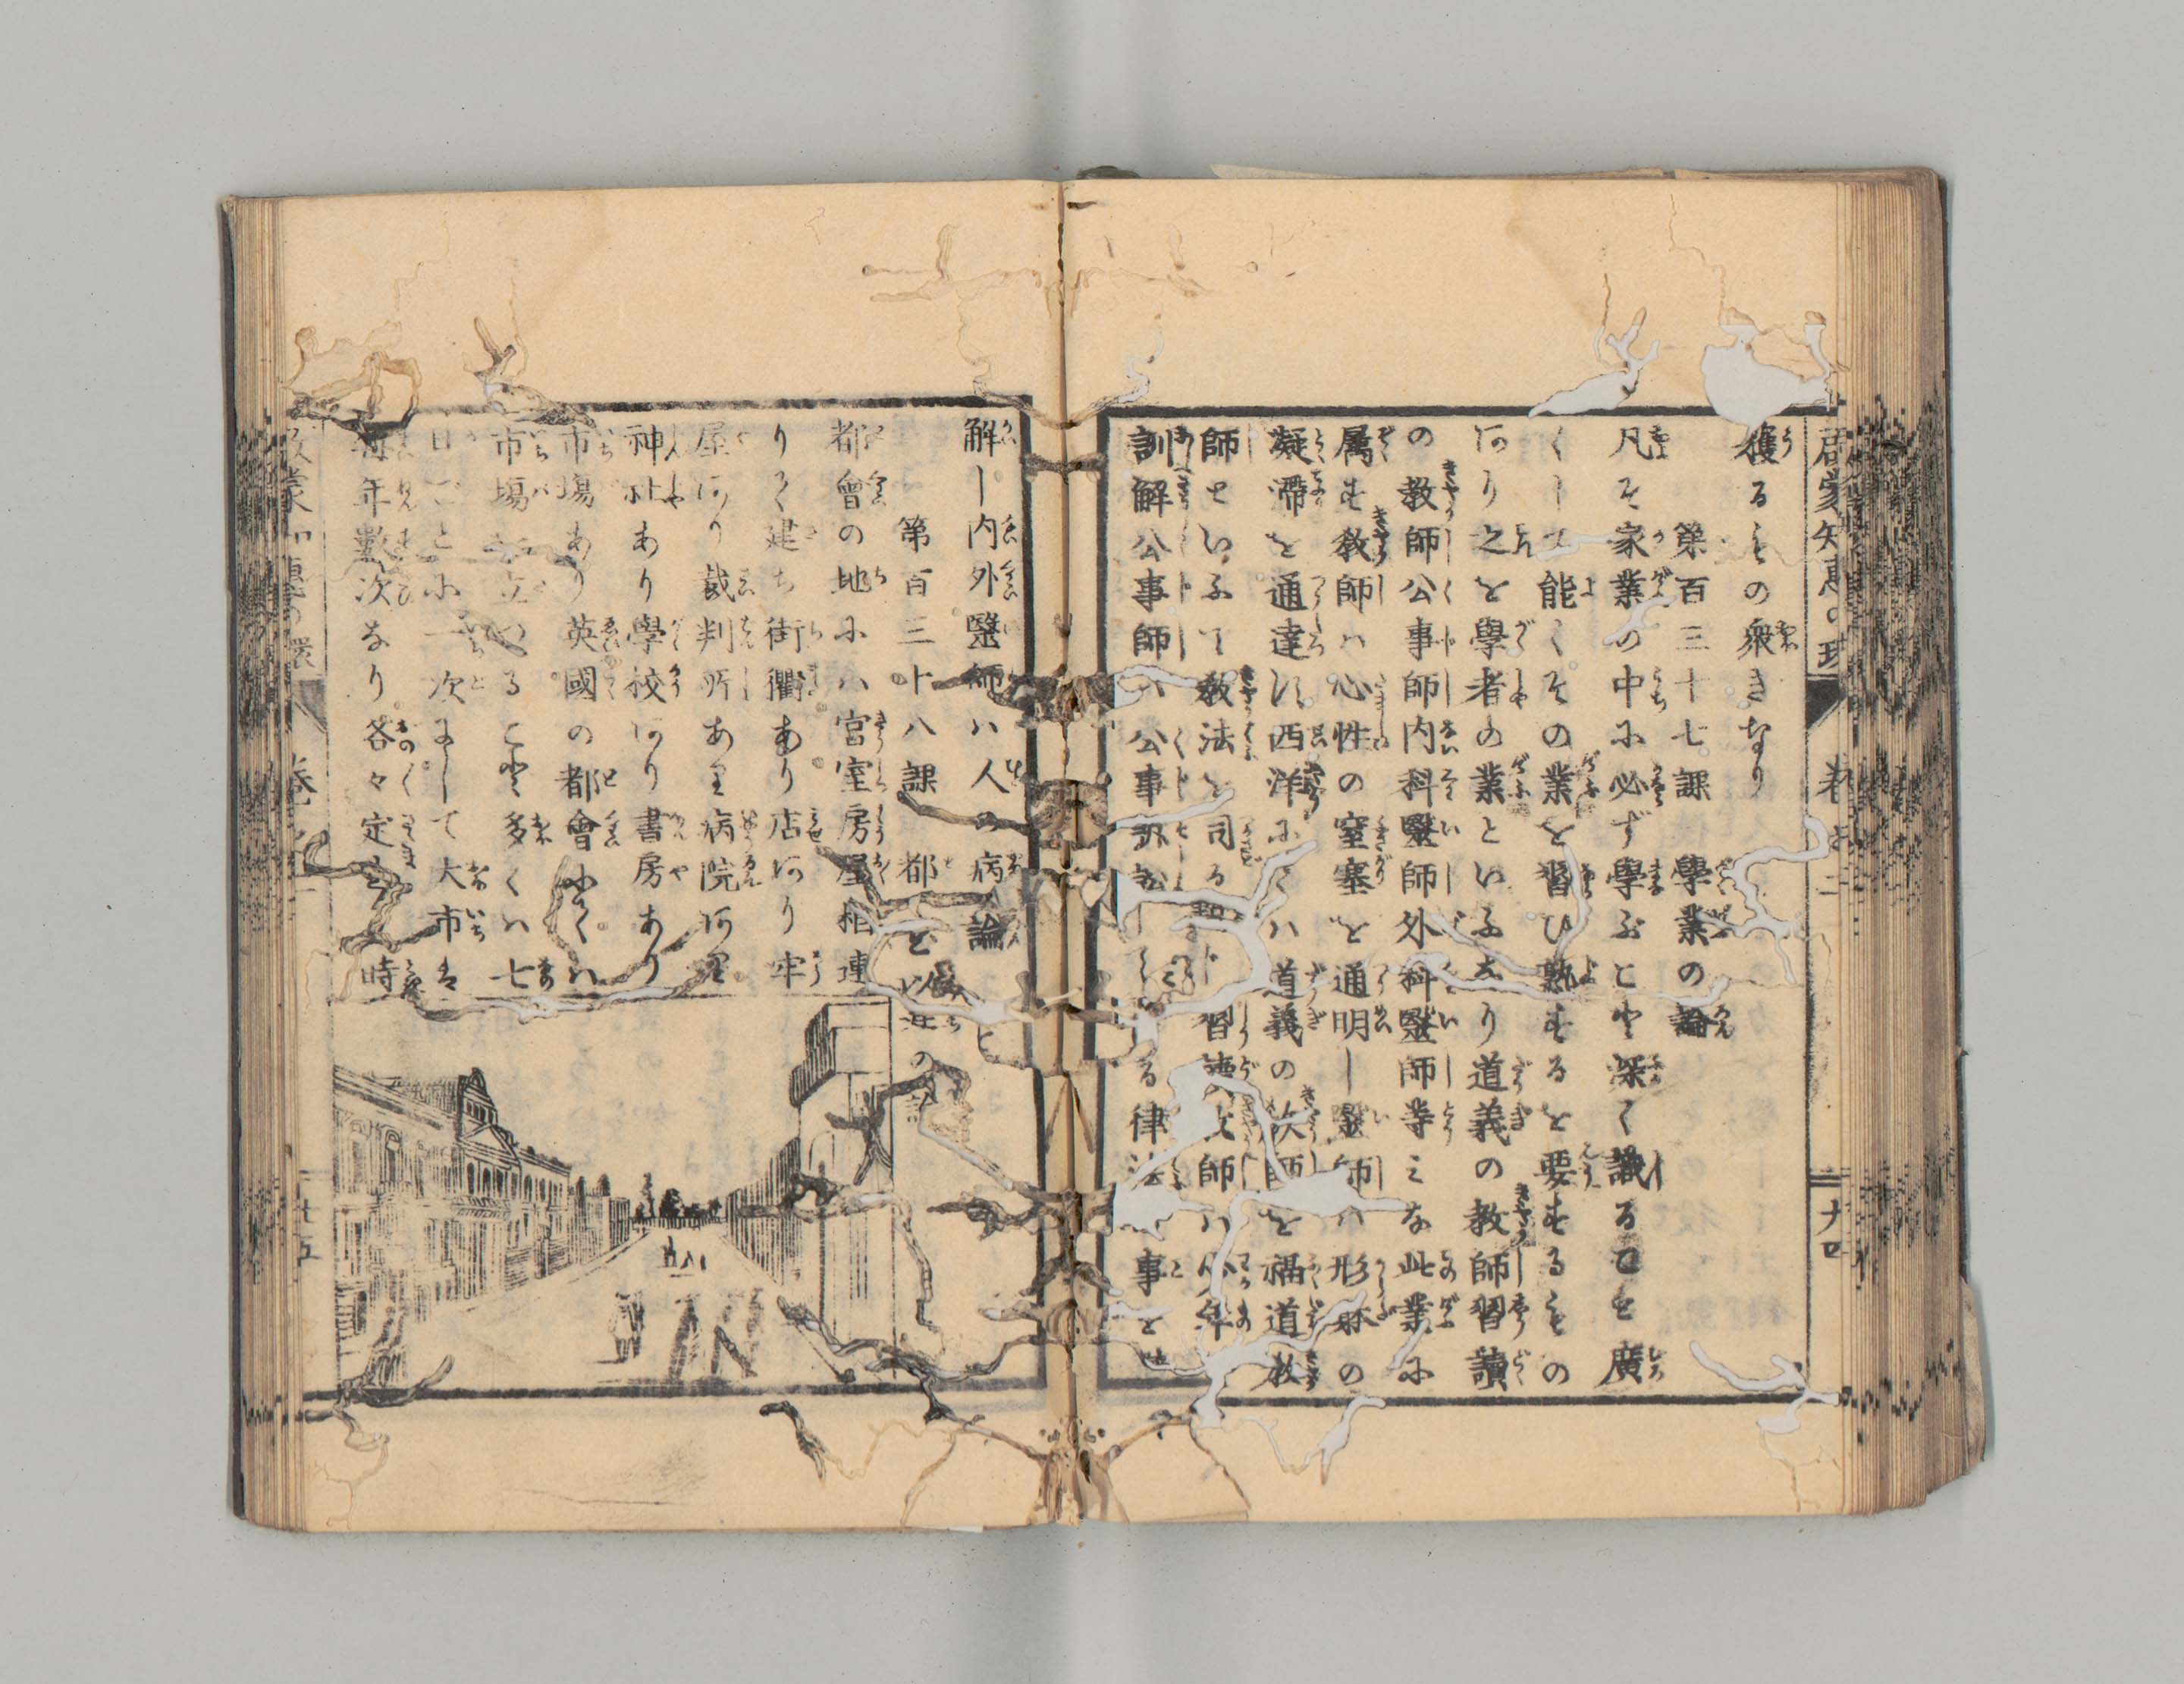 啓蒙知恵の環 巻之二 十四
獲るもの衆きなり
第百三十七課 學業の論
凡そ家業の中に必ず學ぶこと深く識ることを廣
くして能くその業を習ひ熟するを要するもの
あり之を學者の業といふなり道義の教師習讀
の教師公事師内科醫師外科醫師等みな此業に
属す教師ハ心性の窒塞を通明し醫師ハ形躰の
凝滯を通達す西洋にてハ道義の教師を福道教
師といふて教法を司る 習讀教師ハ少年
訓解公事師ハ公事訴訟 る律法 事を
解し内外醫師ハ人の病 論
第百三十八課 都 の論
都會の地にハ宮室房屋相連
りて建ち街衢あり店あり牢
屋あり裁判所あり病院あり
神社あり學校あり書房あり
市場あり英國の都會 ハ
市場 立つること多くハ七
日ごとに一次にして大市は
毎年數次なり各々定 時